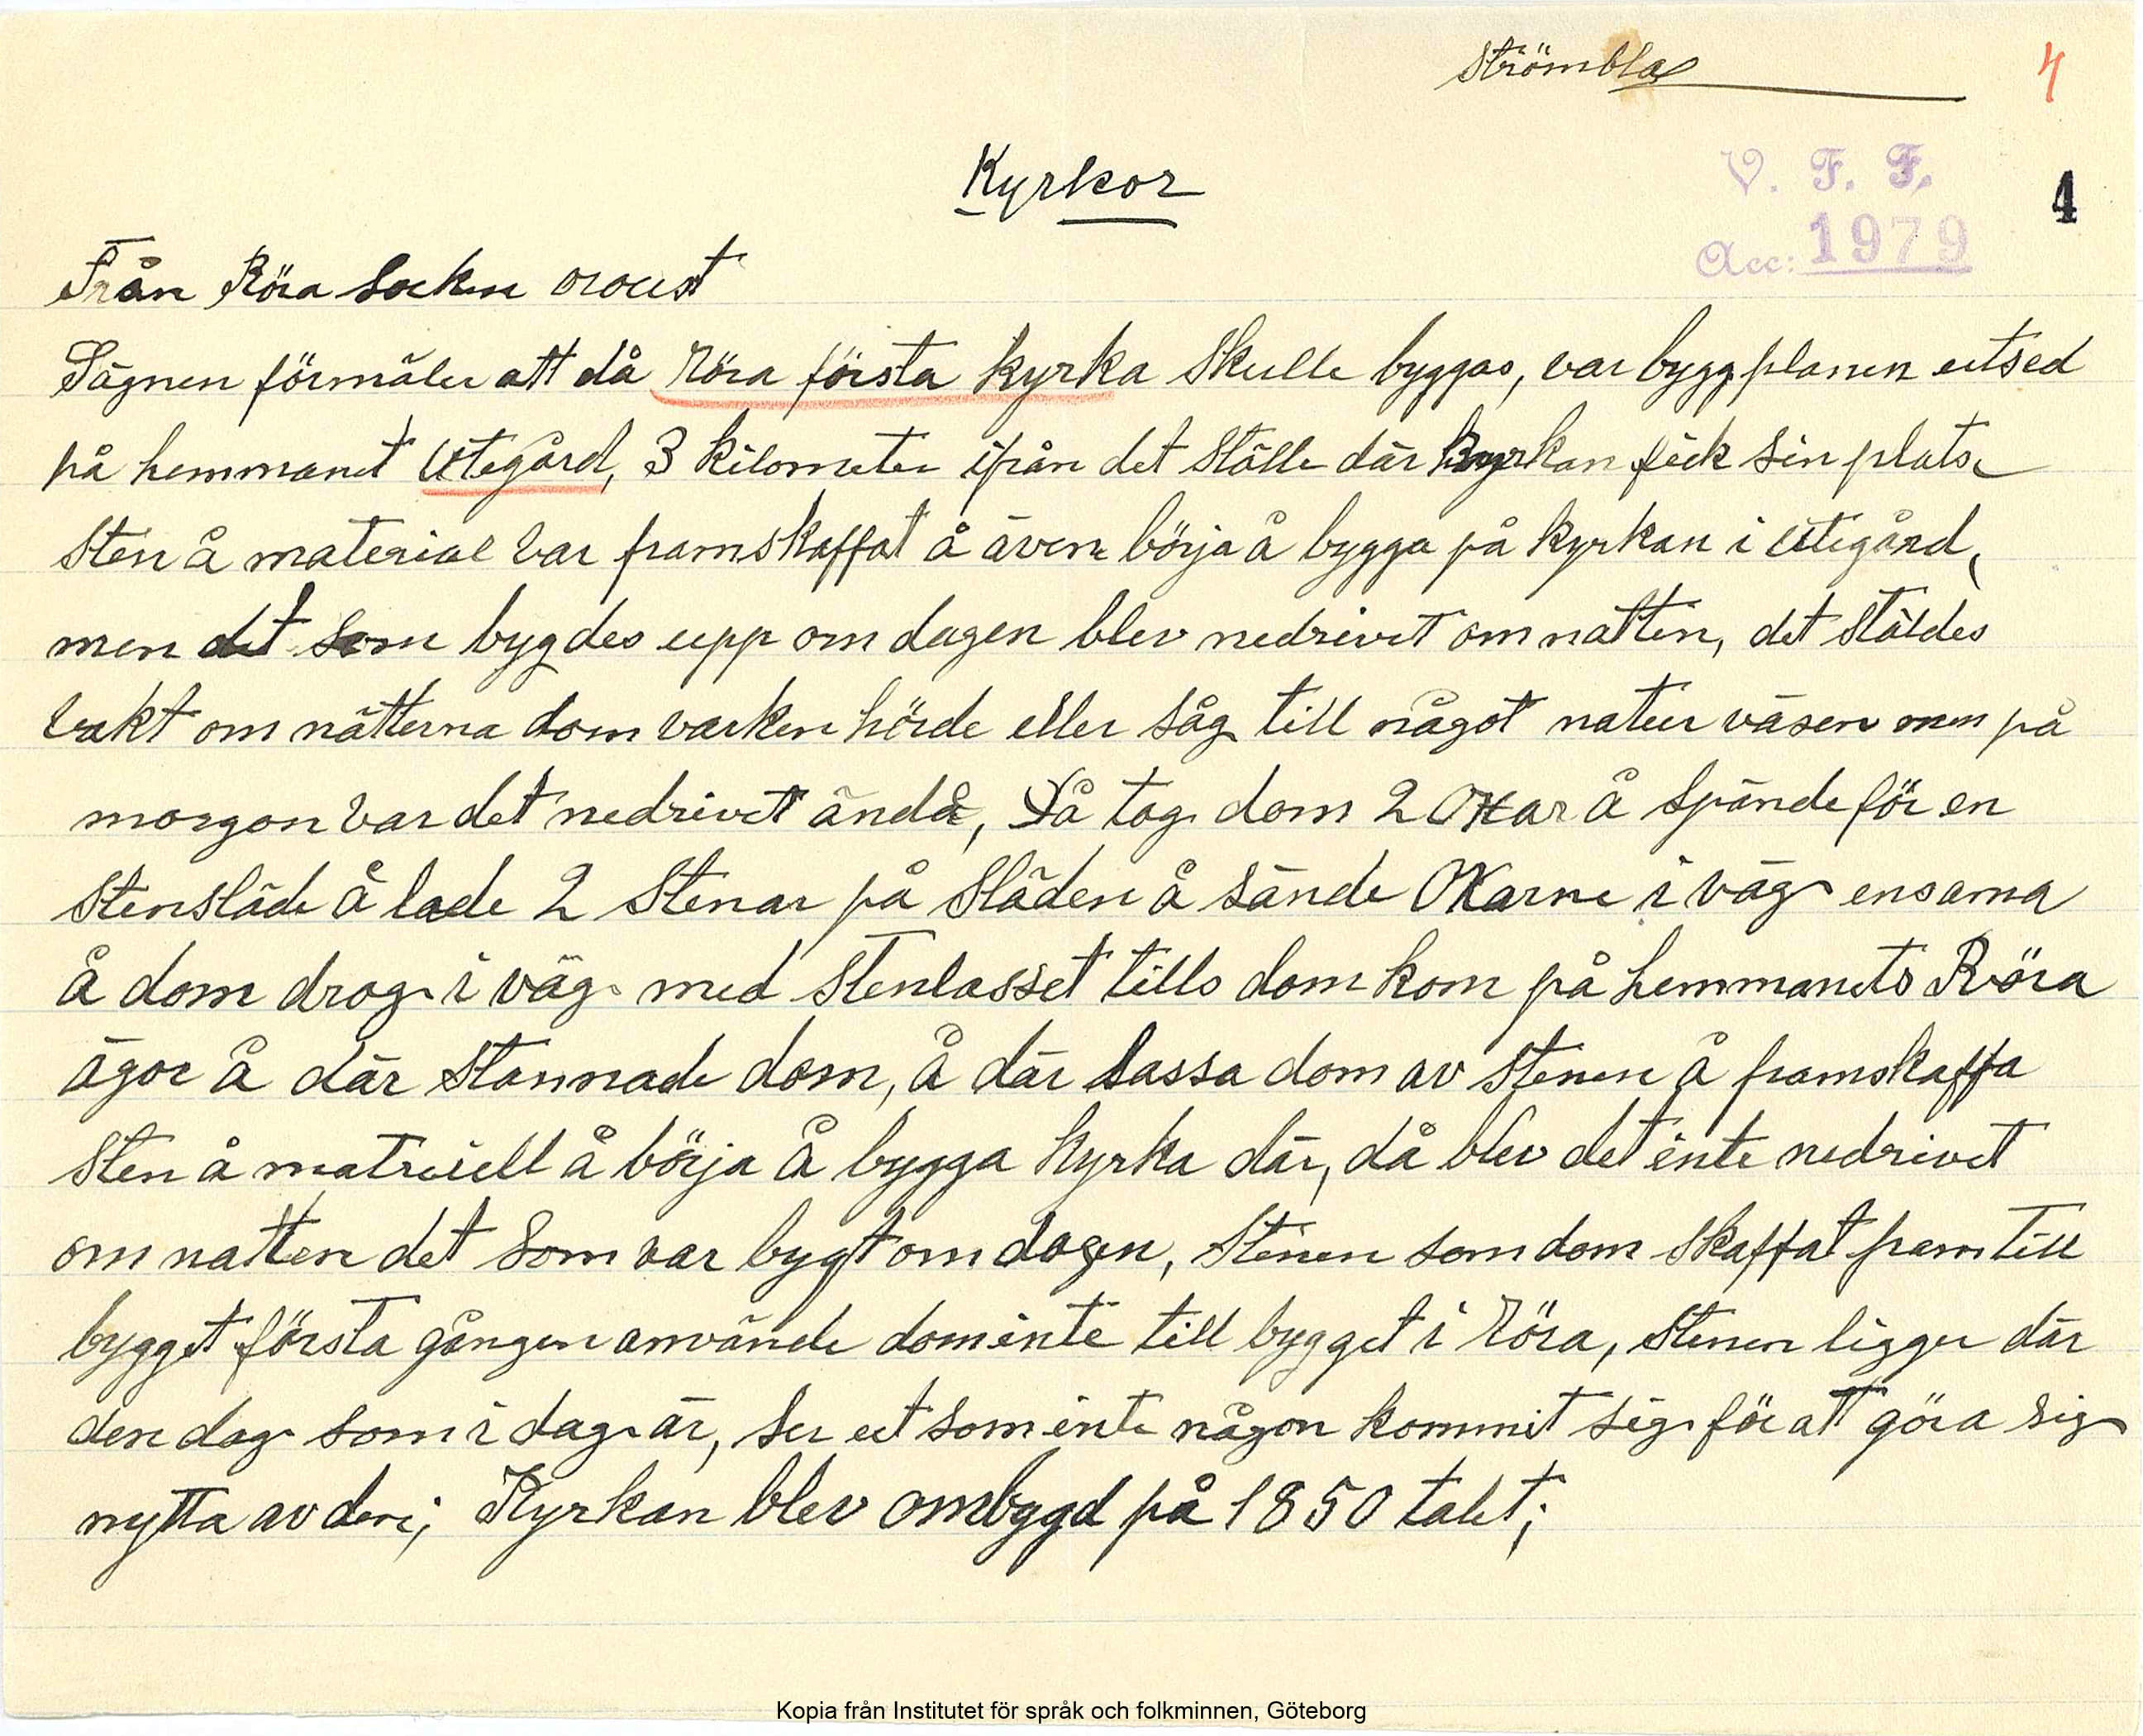 Strömblad
4
Kyrkor
V. F. F.
4
Acc: 1979
Från Röra Socken oroust
Sägnen förmäler att då Röra första kyrka Skulle byggas, var byggplanen utsed
på hemmanet Utegård, 3 kilometer ifrån det Ställe där kyrkan fick sin plats
Sten å material var framskaffat å även börja å bygga på kyrkan i Utegård,
men det som bygdes upp om dagen blev nedrivet om natten, det Stäldes
vakt om nätterna dom varken hörde eller såg till något natur väsen men på
morgon var det nedrivet ändå, Så tog dom 2 Oxar å Spände för en
Stensläde å lade 2 Stenar på Släden å sände Oxarne i väg ensama
å dom drog i väg med Stenlasset tills dom kom på hemmanets Röra
ägor å där Stannade dom, å där lassa dom av Stenen å framskaffa
Sten å matriell å börja å bygga kyrka där, då blev det inte nedrivet
om natten det Som var bygt om dagen, Stenen som dom Skaffat fram till
bygget första gången använde dom inte till bygget i Röra, Stenen ligger där
den dag som i dag är, Ser ut som inte någon kommit sig för att göra sig
nytta av den; Kyrkan blev ombygd på 1850 talet;
Kopia från Institutet för språk och folkminnen, Göteborg